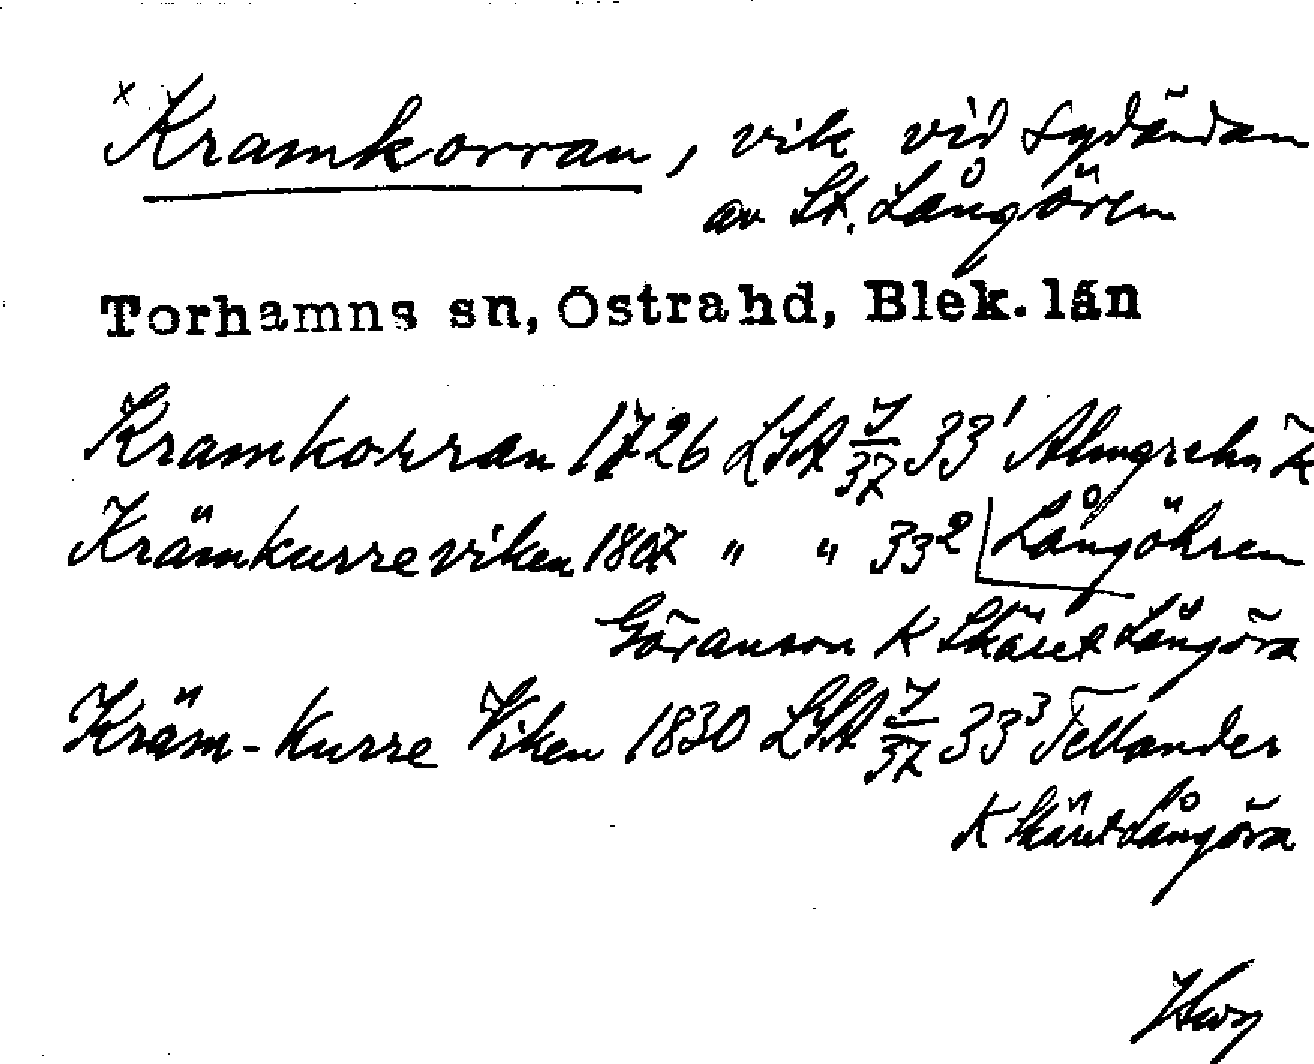 x Kramkorran, vik vid sydändan
av St. Långören
Torhamns sn, Östra hd, Blek. län
Kramkorran 1726 LSA 7/37 33¹ Almgrehn K
Krämkurreviken 1807 " " 33² Långöhren
Göranson K Skäret Långöra
Kräm-Kurre Viken 1830 LSA 7/37 33³ Tellander
K Skäret Långöra